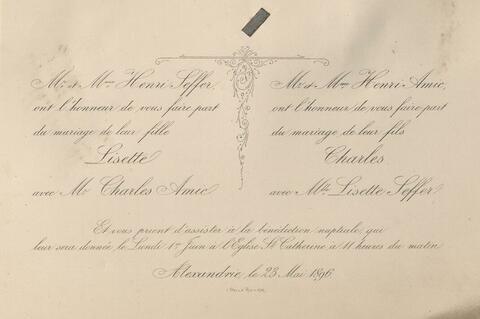 Mr. et Mme Henri Seffer,
ont l'honneur de vous faire part
du mariage de leur fille
Lisette
avec Mr. Charles Amic
Mr. et Mme Henri Amic,
ont l'honneur de vous faire part
du mariage de leur fils
Charles
avec Mlle Lisette Seffer
Et vous prient d'assister à la bénédiction nuptiale, qui
leur sera donnée, le Lundi 1er Juin à l'Eglise Ste Catherine à 11 heures du matin
Alexandrie, le 23 Mai 1896.